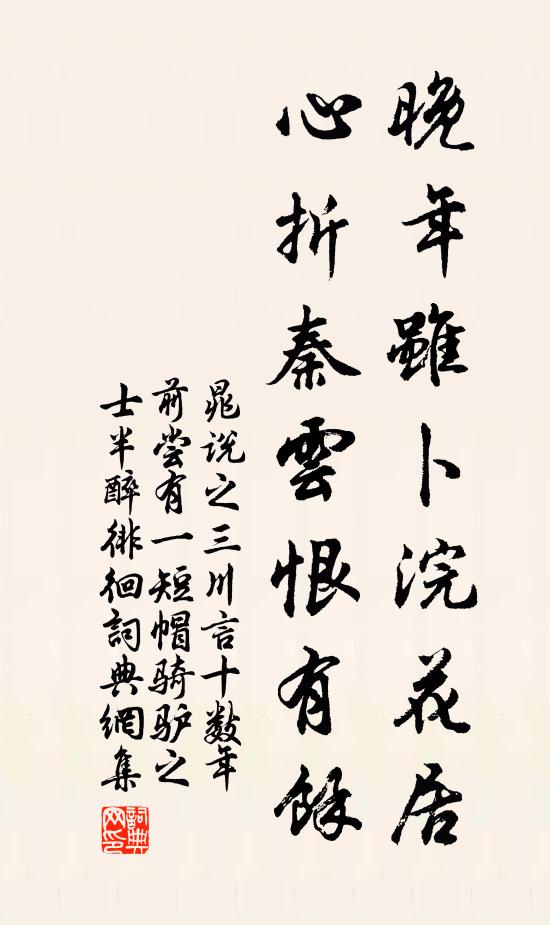 晚年雖卜浣花居
心折秦雲恨有餘
晁說之三川言十數年
前嘗有一短帽骑驴之
士半醉徘徊詞典網集
詞典
网印